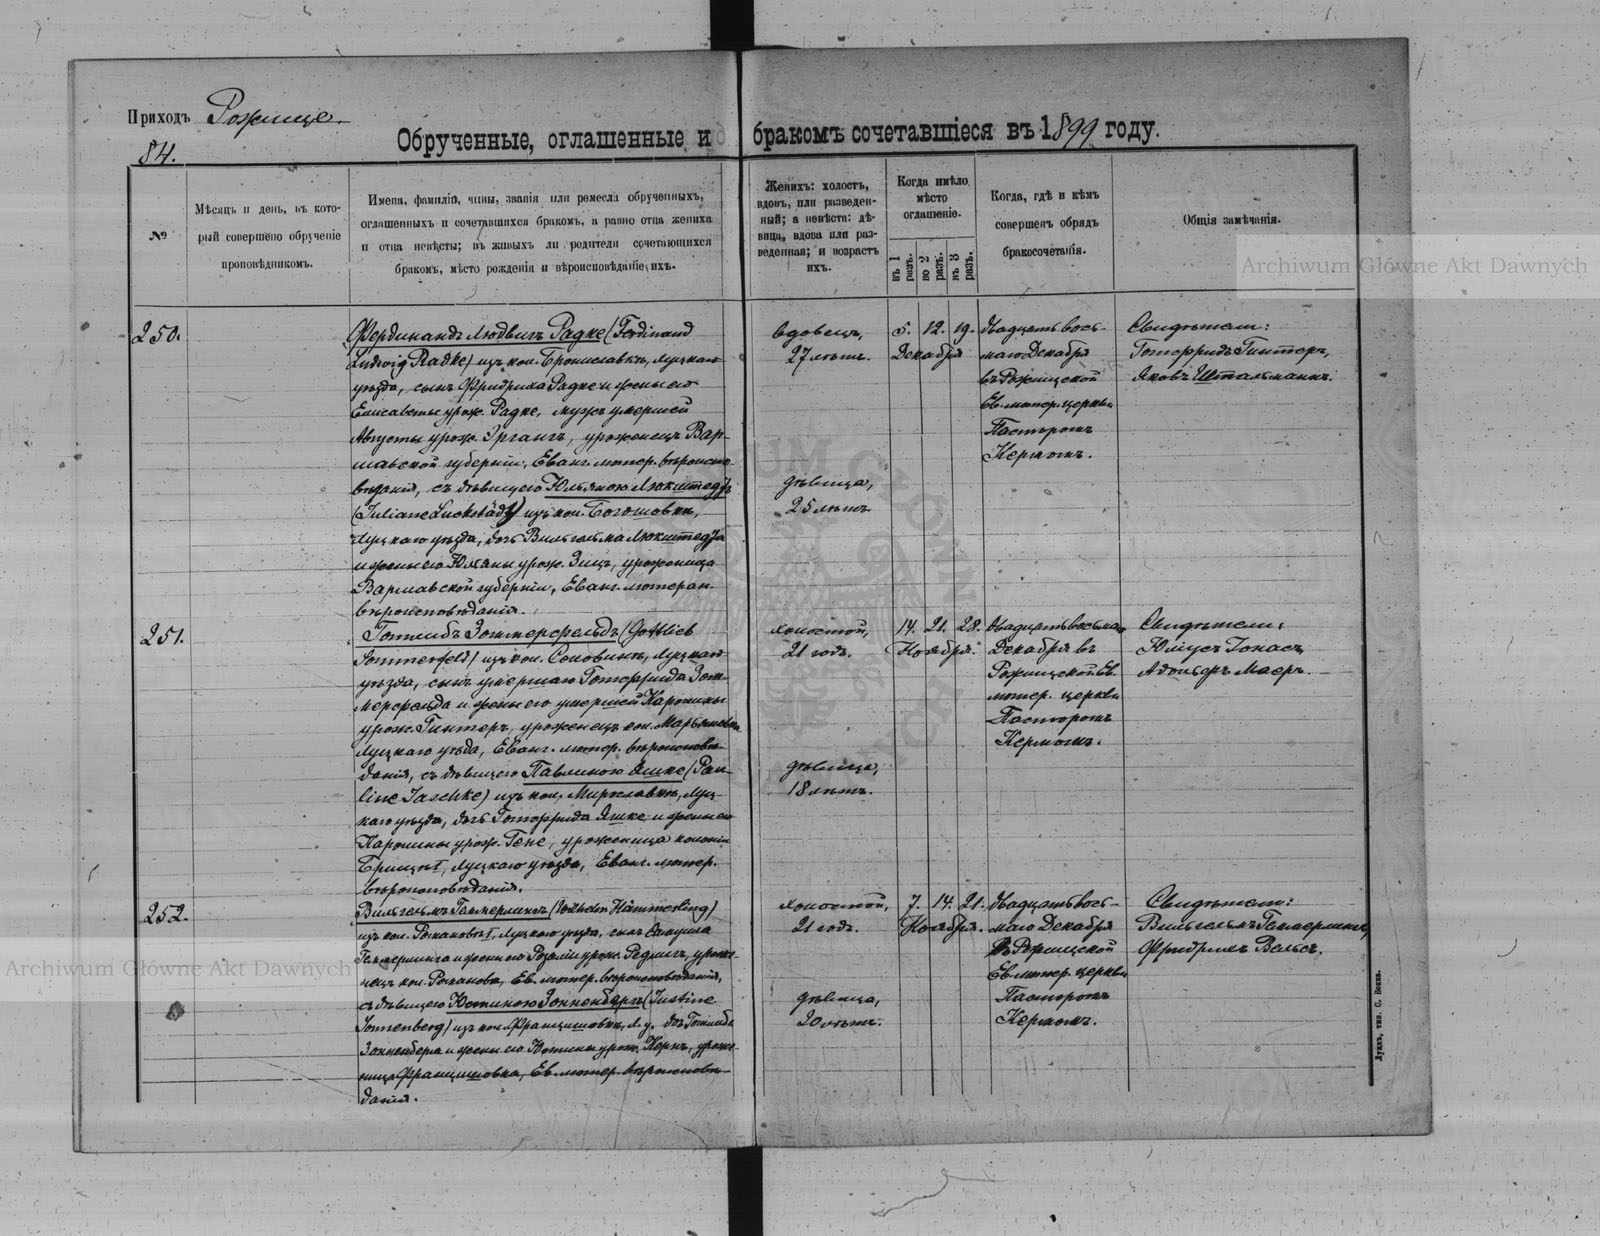 Приходъ Рожище.
84.
Обрученные, оглашенные и бракомъ сочетавшіеся въ 1899 году.
№
Мѣсяцъ и день, въ кото-
рый совершено обрученіе
проповѣдникомъ.
Имена, фамиліи, чины, званія или ремесла обрученныхъ,
оглашенныхъ и сочетавшихся бракомъ, а равно отца жениха
и отца невѣсты; въ живыхъ ли родители сочетающихся
бракомъ, мѣсто рожденія и вѣроисповѣданіе ихъ.
Женихъ: холостъ,
вдовъ, или разведен-
ный; а невѣста: дѣ-
вица, вдова или раз-
веденная; и возрастъ
ихъ.
Когда имѣло
мѣсто
оглашеніе.
въ 1 разъ.
во 2 разъ.
въ 3 разъ.
Когда, гдѣ и кѣмъ
совершенъ обрядъ
бракосочетанія.
Общія замѣчанія.
250.
Фердинандъ Людвигъ Радке (Ferdinand
Ludwig Radke) изъ кол. Брониславки, Луцкаго
уѣзда, сынъ Фридриха Радке и жены его
Елисаветы урож. Радке, мужъ умершей
Августы урож. Эрганъ, уроженецъ Вар-
шавской губерніи, Еванг. лютер. вѣроиспо-
вѣданія, съ дѣвицею Юльяною Люкштедтъ
(Juliane Luckstädt) изъ кол. Богошовки,
Луцкаго уѣзда, дочь Вильгельма Люкштедта
и жены его Юльяны урож. Зицъ, уроженица
Варшавской губерніи, Еванг. лютеран.
вѣроисповѣданія.
вдовецъ,
27 лѣтъ.
дѣвица,
25 лѣтъ.
5. 12. 19.
Декабря
Двадцать вось-
маго Декабря
въ Рожищской
Ев. лютер. церкви
Пасторомъ
Кермомъ.
Свидѣтели:
Готфридъ Гинтеръ,
Яковъ Штальманъ.
251.
Готлибъ Зоммерфельдъ (Gottlieb
Sommerfeld) изъ кол. Соловинъ, Луцкаго
уѣзда, сынъ умершаго Готфрида Зом-
мерфельда и жены его умершей Каролины
урож. Гинтеръ, уроженецъ кол. Марьяновки
Луцкаго уѣзда, Еванг. лютер. вѣроисповѣ-
данія, съ дѣвицею Павлиною Яшке (Pau-
line Jaschke) изъ кол. Мирославки, Луц-
каго уѣзда, дочь Готфрида Яшке и жены его
Каролины урож. Гене, уроженица колоніи
Брище I, Луцкаго уѣзда, Еванг. лютер.
вѣроисповѣданія.
холостой,
21 годъ.
дѣвица,
18 лѣтъ.
14. 21. 28.
Ноября.
Двадцать восьмаго
Декабря въ
Рожищской Ев.
лютер. церкви
Пасторомъ
Кермомъ.
Свидѣтели:
Юліусъ Іонасъ,
Адольфъ Маеръ.
252.
Вильгельмъ Геммерлингъ (Wilhelm Hämmerling)
изъ кол. Романовъ I, Луцкаго уѣзда, сынъ Самуила
Геммерлинга и жены его Розаліи урож. Редлихъ, уроже-
нецъ кол. Романовъ, Ев. лютер. вѣроисповѣданія,
съ дѣвицею Юстиною Зонненбергъ (Justine
Sonnenberg) изъ кол. Францишовки, Л. у. дочь Готлиба
Зонненберга и жены его Юстины урож. Кернъ, уроже-
ница Францишовки, Ев. лютер. вѣроисповѣ-
данія.
холостой,
21 годъ.
дѣвица,
20 лѣтъ.
7. 14. 21.
Ноября.
Двадцать вось-
маго Декабря
въ Рожищской
Ев. лютер. церкви
Пасторомъ
Кермомъ.
Свидѣтели:
Вильгельмъ Геммерлингъ,
Фридрихъ Вельсъ.
Archiwum Główne Akt Dawnych
Archiwum Główne Akt Dawnych